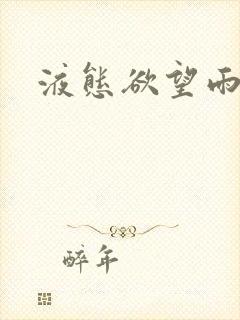 液態欲望雨
醉年